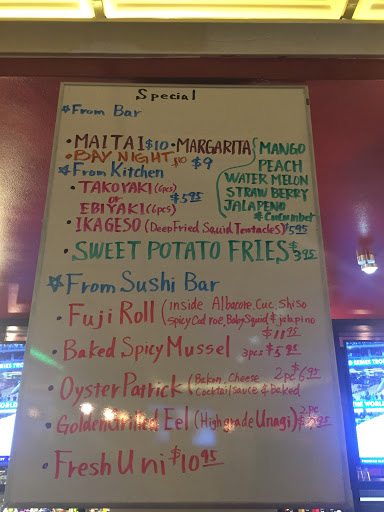 Special
From Bar
• MAITAI $10 • MARGARITA $9 { MANGO
PEACH
WATER MELON
STRAW BERRY
JALAPENO
& Cucumber
• BAY NIGHT $10
From Kitchen
• TAKOYAKI (6pcs)
or
EBIYAKI (6pcs) $5.95
• IKAGESO (Deep Fried Squid Tentacles) $5.95
• SWEET POTATO FRIES $3.95
From Sushi Bar
• Fuji Roll (inside Albacore, Cuc, Shiso
spicy Cod roe, Baby Squid & jalapino
$11.95
• Baked Spicy Mussel 3pcs $5.95
• Oyster Patrick (Bakon, Cheese 2pc $6.95
Cocktail sauce & Baked
• Golden Grilled Eel (High grade Unagi) 2pc
• Fresh Uni $10.95